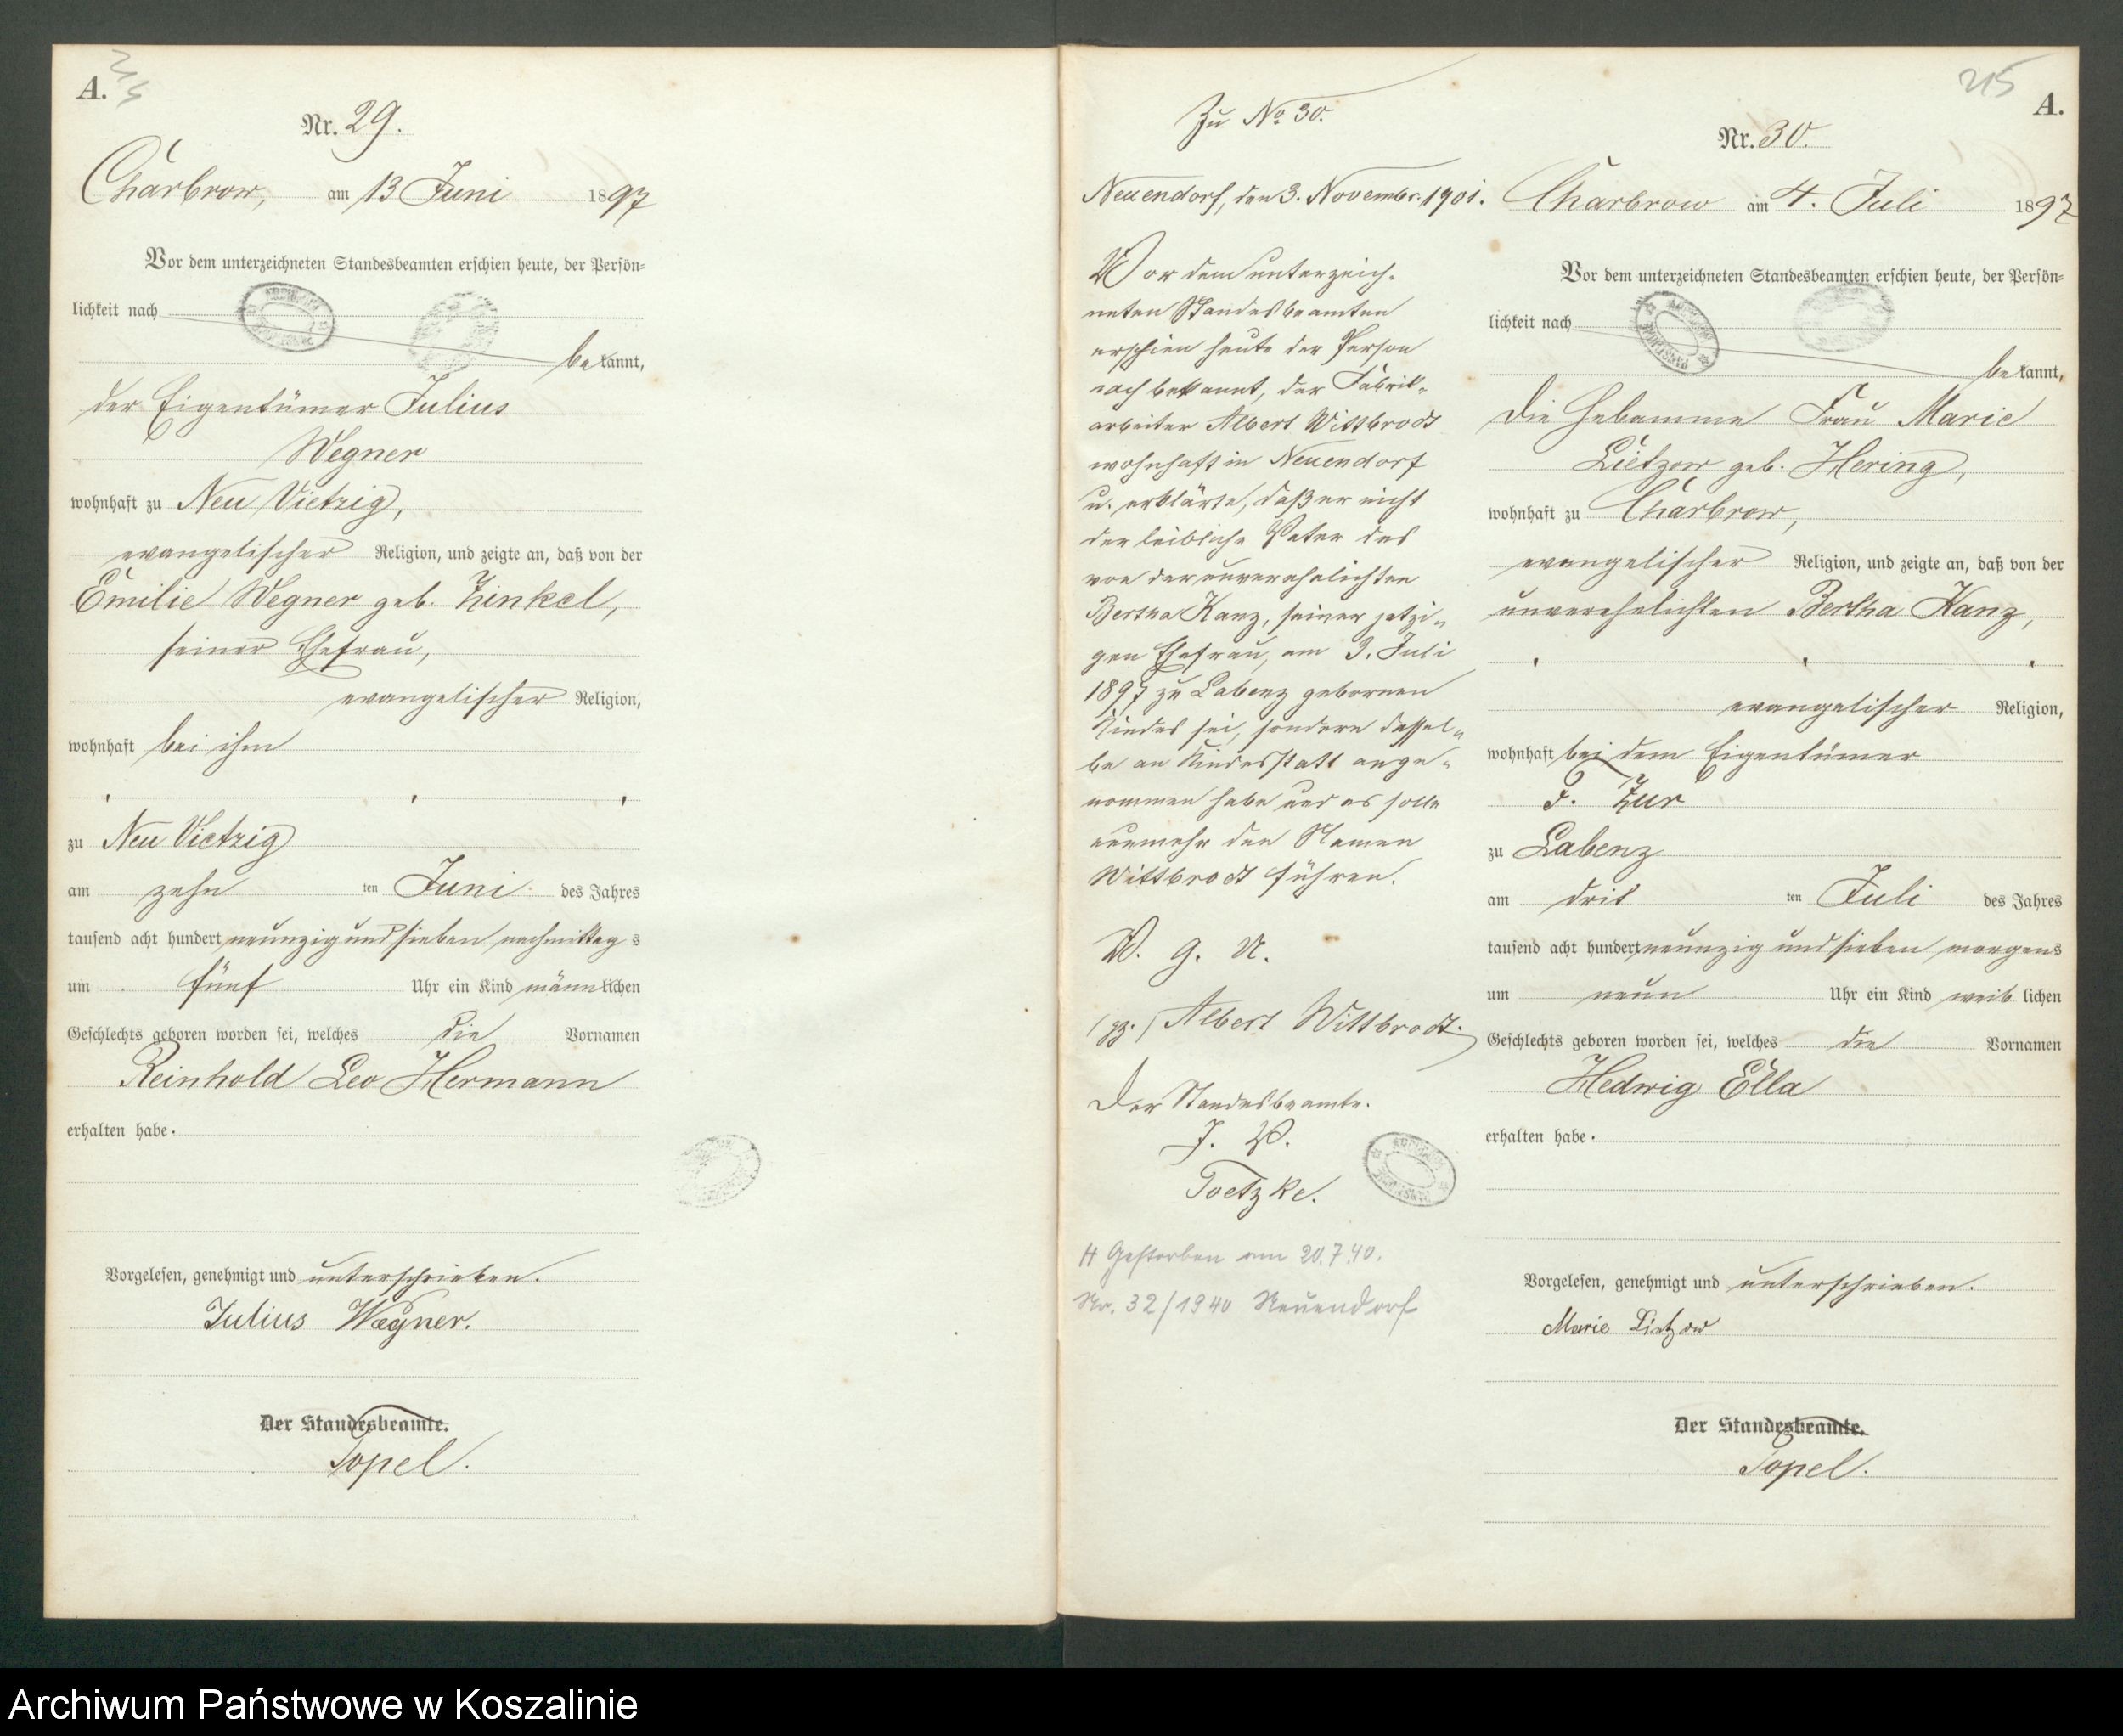 A.
Nr. 29.
Charbrow, am 13 Juni 1897
Vor dem unterzeichneten Standesbeamten erschien heute, der Persön=
lichkeit nach
bekannt,
der Eigentümer Julius
Wegner
wohnhaft zu Neu Vietzig,
evangelischer Religion, und zeigte an, daß von der
Emilie Wegner geb. Zinkel,
seiner Ehefrau,
evangelischer Religion,
wohnhaft bei ihm
zu Neu Vietzig
am zehn ten Juni des Jahres
tausend acht hundert neunzig und sieben nachmittags
um fünf Uhr ein Kind männlichen
Geschlechts geboren worden sei, welches die Vornamen
Reinhold Leo Hermann
erhalten habe.
Vorgelesen, genehmigt und unterschrieben.
Julius Wegner.
Der Standesbeamte.
Topel.
Zu No 30.
Neuendorf, den 3. November 1901.
Vor dem unterzeich-
neten Standesbeamten
erschien heute der Person
nach bekannt, der Fabrik-
arbeiter Albert Wittbrodt
wohnhaft in Neuendorf
u. erklärte, daß er nicht
der leibliche Vater des
von der unverehelichten
Bertha Kanz, seiner jetzi-
gen Ehefrau, am 3. Juli
1897 zu Labenz gebornen
Kindes sei, sondern dassel-
be an Kindesstatt ange-
nommen habe und es solle
nunmehr den Namen
Wittbrodt führen.
V. g. U.
(gz.) Albert Wittbrodt.
Der Standesbeamte.
J. V.
Goetzke.
Gestorben am 20.7.40.
Nr. 32/1940 Neuendorf
215
A.
Nr. 30.
Charbrow am 4. Juli 1897
Vor dem unterzeichneten Standesbeamten erschien heute, der Persön=
lichkeit nach
bekannt,
die Hebamme Frau Marie
Lietzow geb. Hering,
wohnhaft zu Charbrow,
evangelischer Religion, und zeigte an, daß von der
unverehelichten Bertha Kanz,
evangelischer Religion,
wohnhaft bei dem Eigentümer
F. Zur
zu Labenz
am drit ten Juli des Jahres
tausend acht hundert neunzig und sieben morgens
um neun Uhr ein Kind weiblichen
Geschlechts geboren worden sei, welches die Vornamen
Hedwig Ella
erhalten habe.
Vorgelesen, genehmigt und unterschrieben.
Marie Lietzow
Der Standesbeamte.
Topel.
Archiwum Państwowe w Koszalinie